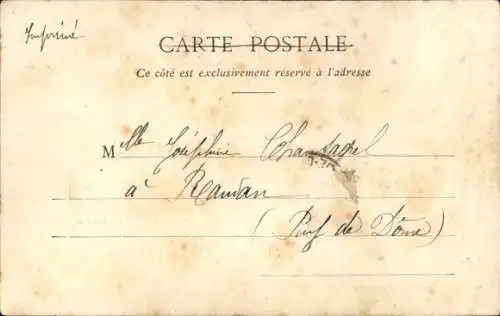 Imprimé
CARTE POSTALE
Ce côté est exclusivement réservé à l'adresse
Mlle Joséphine
à Randan
(Puy de Dôme)